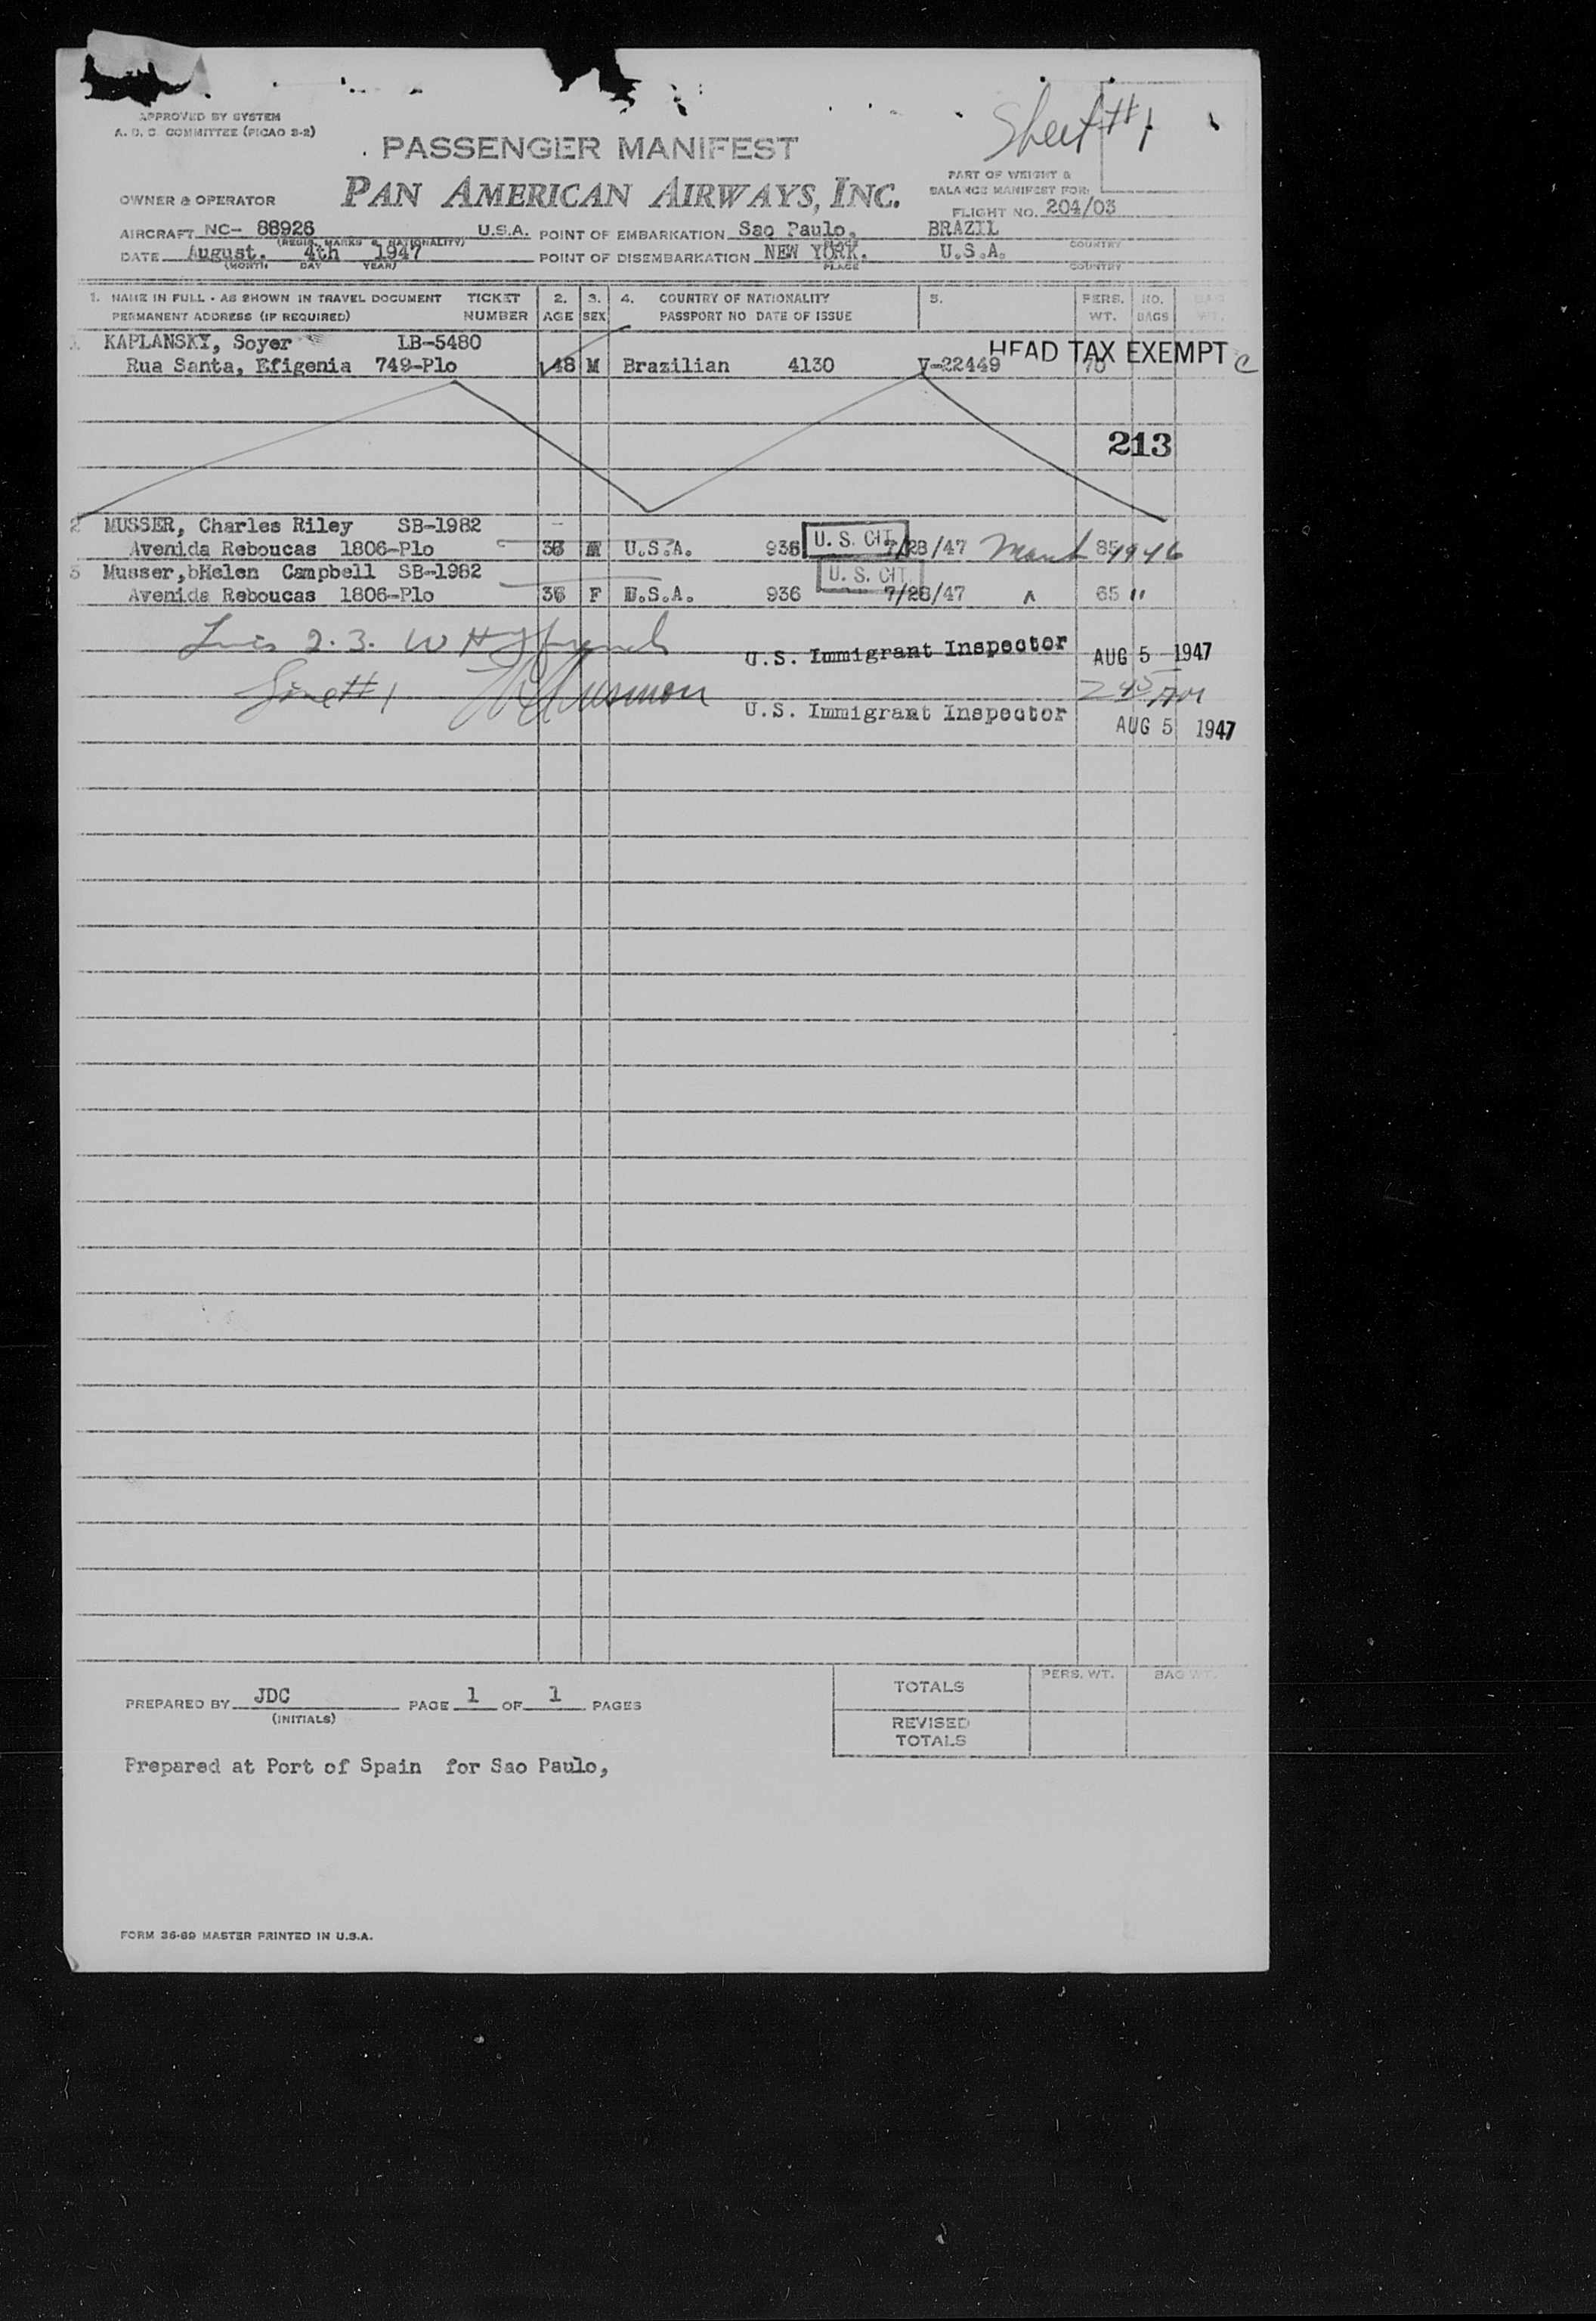 APPROVED BY SYSTEM
A. O. C. COMMITTEE (PICAO 3-2)
Sheet #1
PASSENGER MANIFEST
PART OF WEIGHT &
BALANCE MANIFEST FOR:
OWNER & OPERATOR PAN AMERICAN AIRWAYS, INC.
FLIGHT NO. 204/03
AIRCRAFT NC- 88926 U.S.A. POINT OF EMBARKATION Sao Paulo, BRAZIL
(REGIS. MARKS & NATIONALITY) PLACE COUNTRY
DATE August. 4th 1947 POINT OF DISEMBARKATION NEW YORK. U.S.A.
(MONTH DAY YEAR) PLACE COUNTRY
1. NAME IN FULL - AS SHOWN IN TRAVEL DOCUMENT TICKET 2. 3. 4. COUNTRY OF NATIONALITY 5. PERS. NO. BAG
PERMANENT ADDRESS (IF REQUIRED) NUMBER AGE SEX PASSPORT NO DATE OF ISSUE WT. BAGS WT.
1 KAPLANSKY, Soyer LB-5480 HEAD TAX EXEMPT C
Rua Santa, Efigenia 749-Plo 48 M Brazilian 4130 V-22449 70
213
2 MUSSER, Charles Riley SB-1982
Avenida Reboucas 1806-Plo M U.S.A. U. S. CIT 7/28/47 March 1946 85
3 Musser,bHelen Campbell SB-1982 U. S. CIT
Avenida Reboucas 1806-Plo F U.S.A. 936 7/28/47 65 "
2. 3. W H
U.S. Immigrant Inspector AUG 5 1947
Line #1
245 AM
U.S. Immigrant Inspector AUG 5 1947
PREPARED BY JDC PAGE 1 OF 1 PAGES
(INITIALS)
TOTALS PERS. WT. BAG WT.
REVISED
TOTALS
Prepared at Port of Spain for Sao Paulo,
FORM 36-69 MASTER PRINTED IN U.S.A.